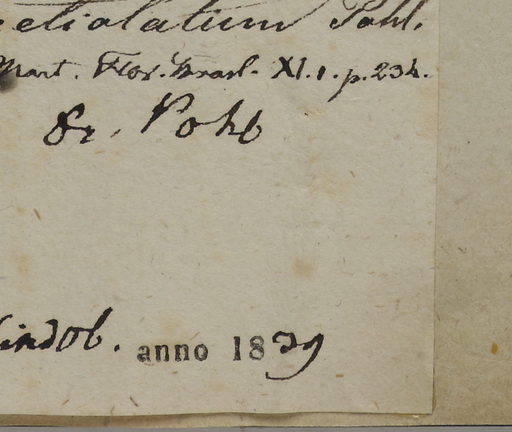 etiolatum Pohl.
Mart. Flor. Brasil. XI. 1. p. 234.
Dr. Pohl
indob. anno 1839